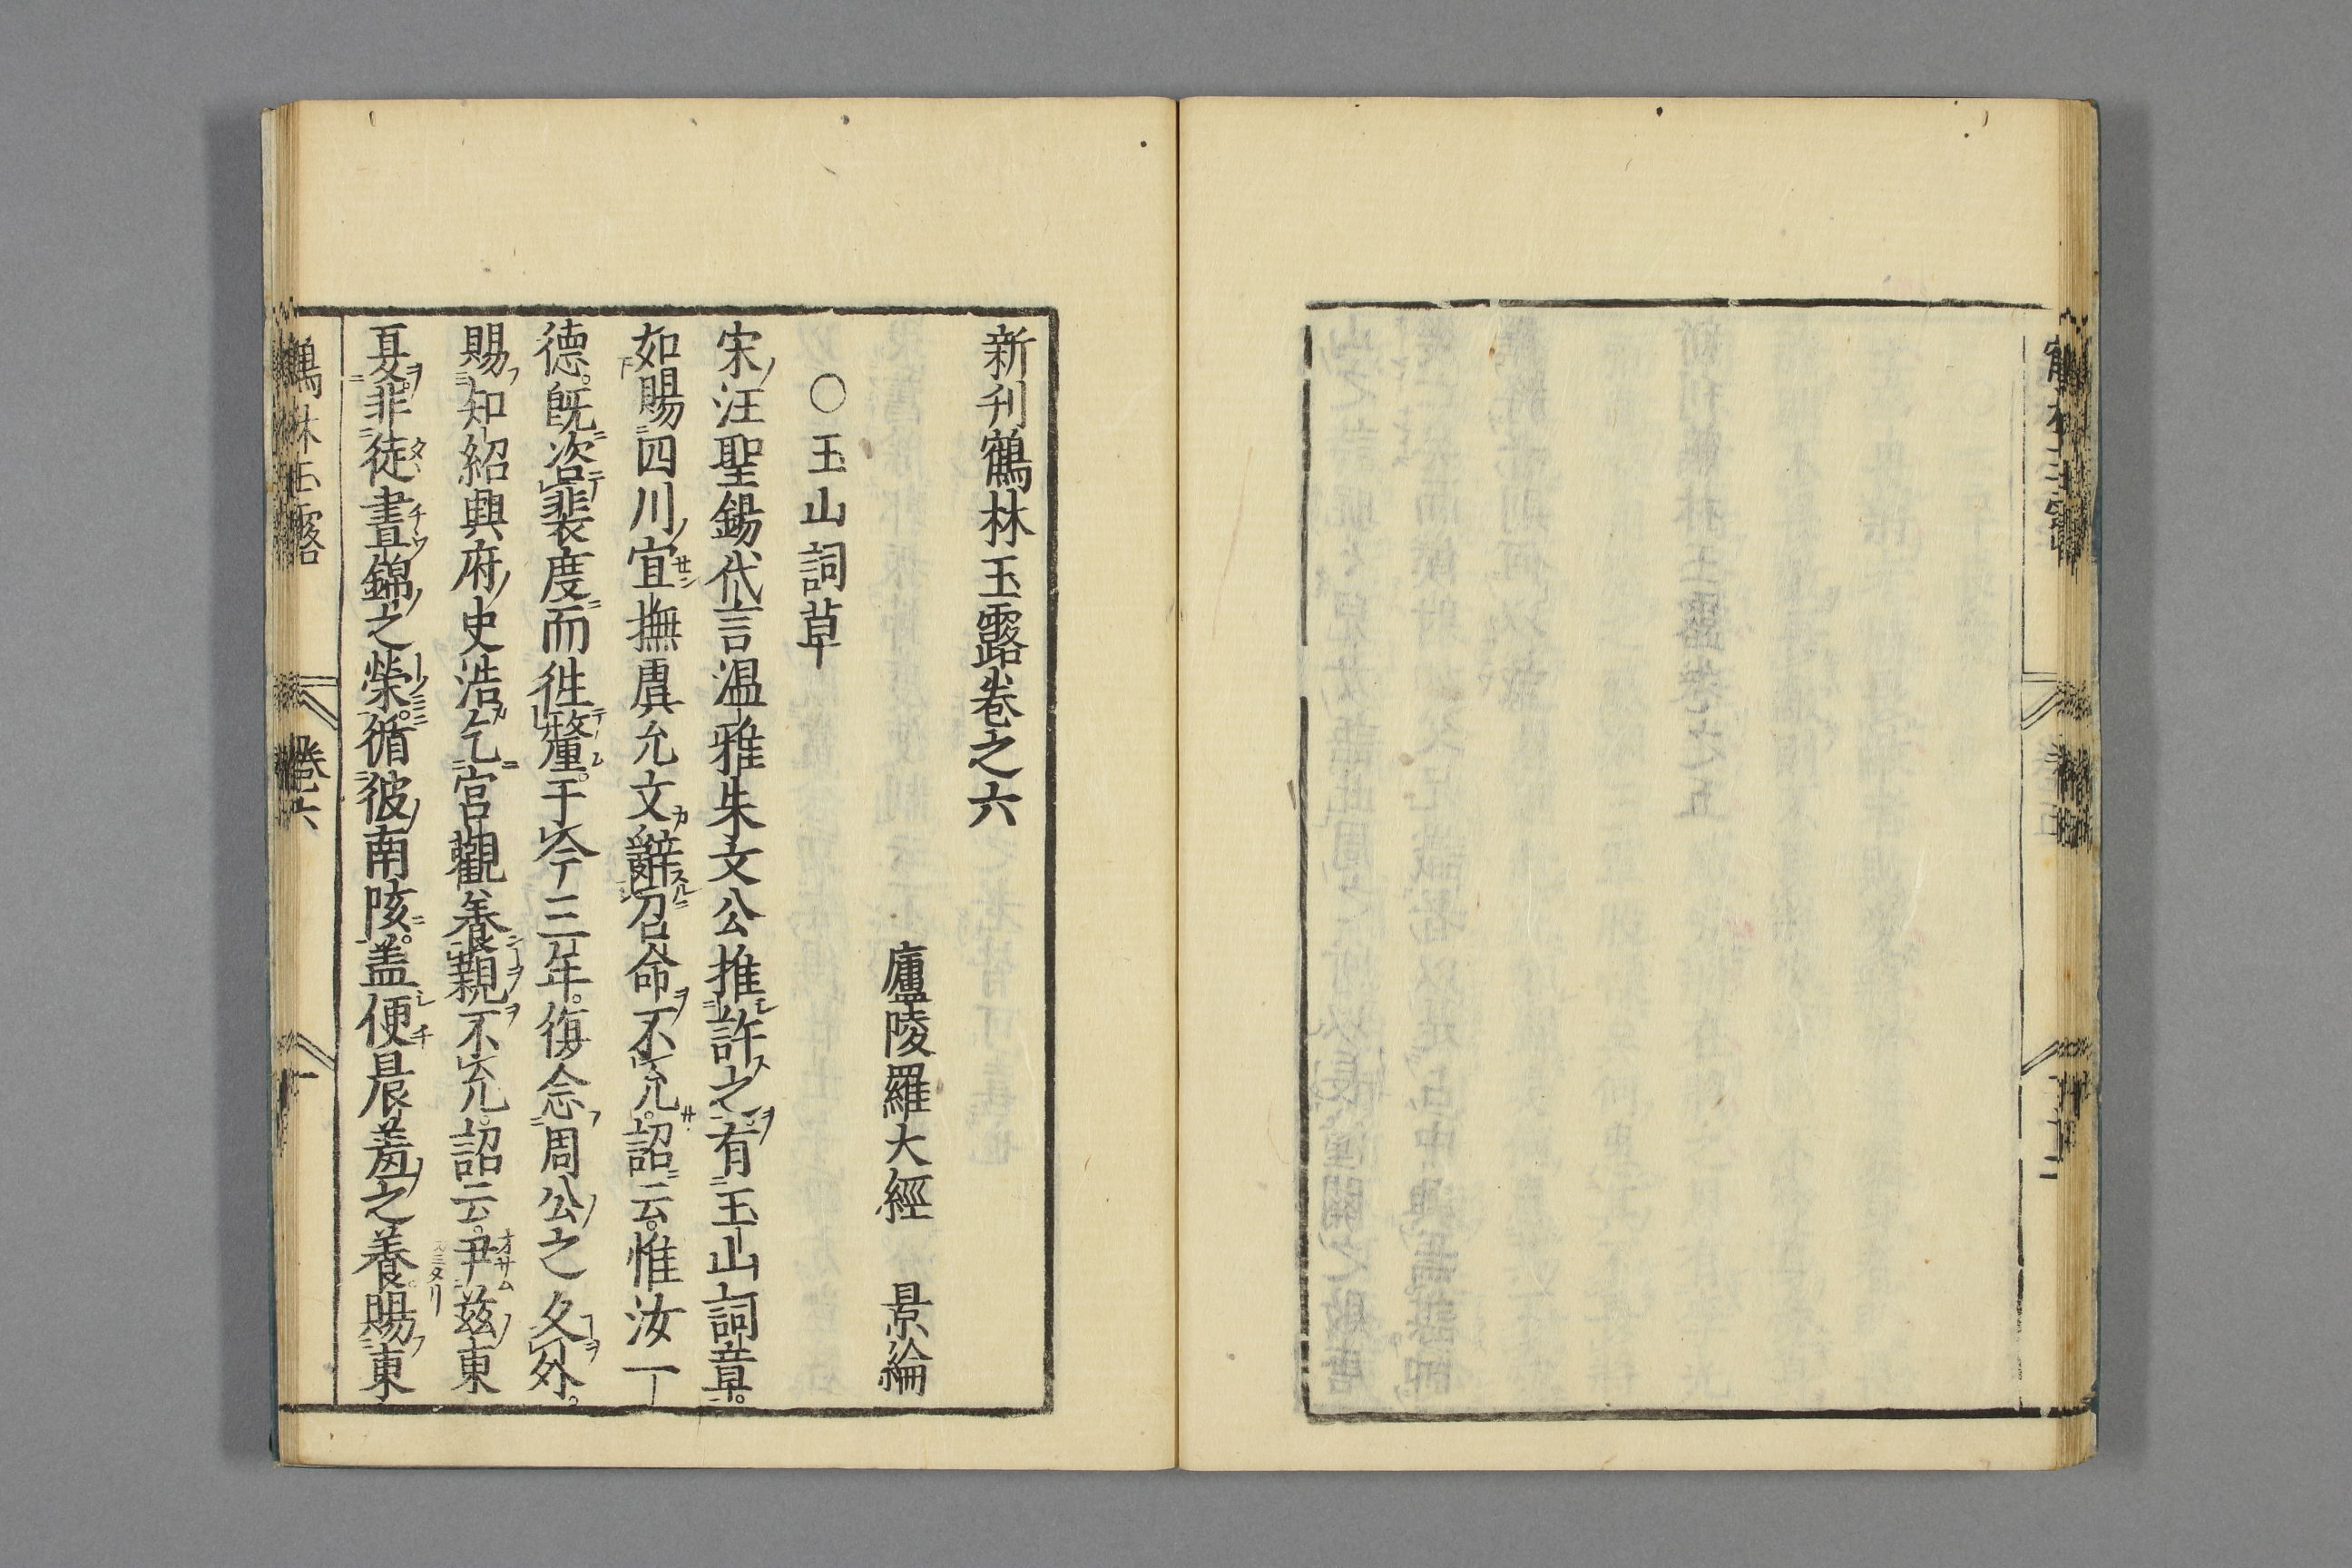 新刊鶴林玉露卷之六
廬陵羅大經　景綸
○玉山詞草
宋汪聖錫代言温雅朱文公推許之有玉山詞章。
如賜四川宣撫虞允文辭召命不允。詔云。惟汝一
德。旣咨裴度而徃釐。于今三年。復念周公之久外。
賜知紹興府史浩乞宮觀養親不允。詔云。尹兹東
夏。非徒晝錦之榮。循彼南陔。盖便晨羞之養。賜東
鶴林玉露　卷六　一